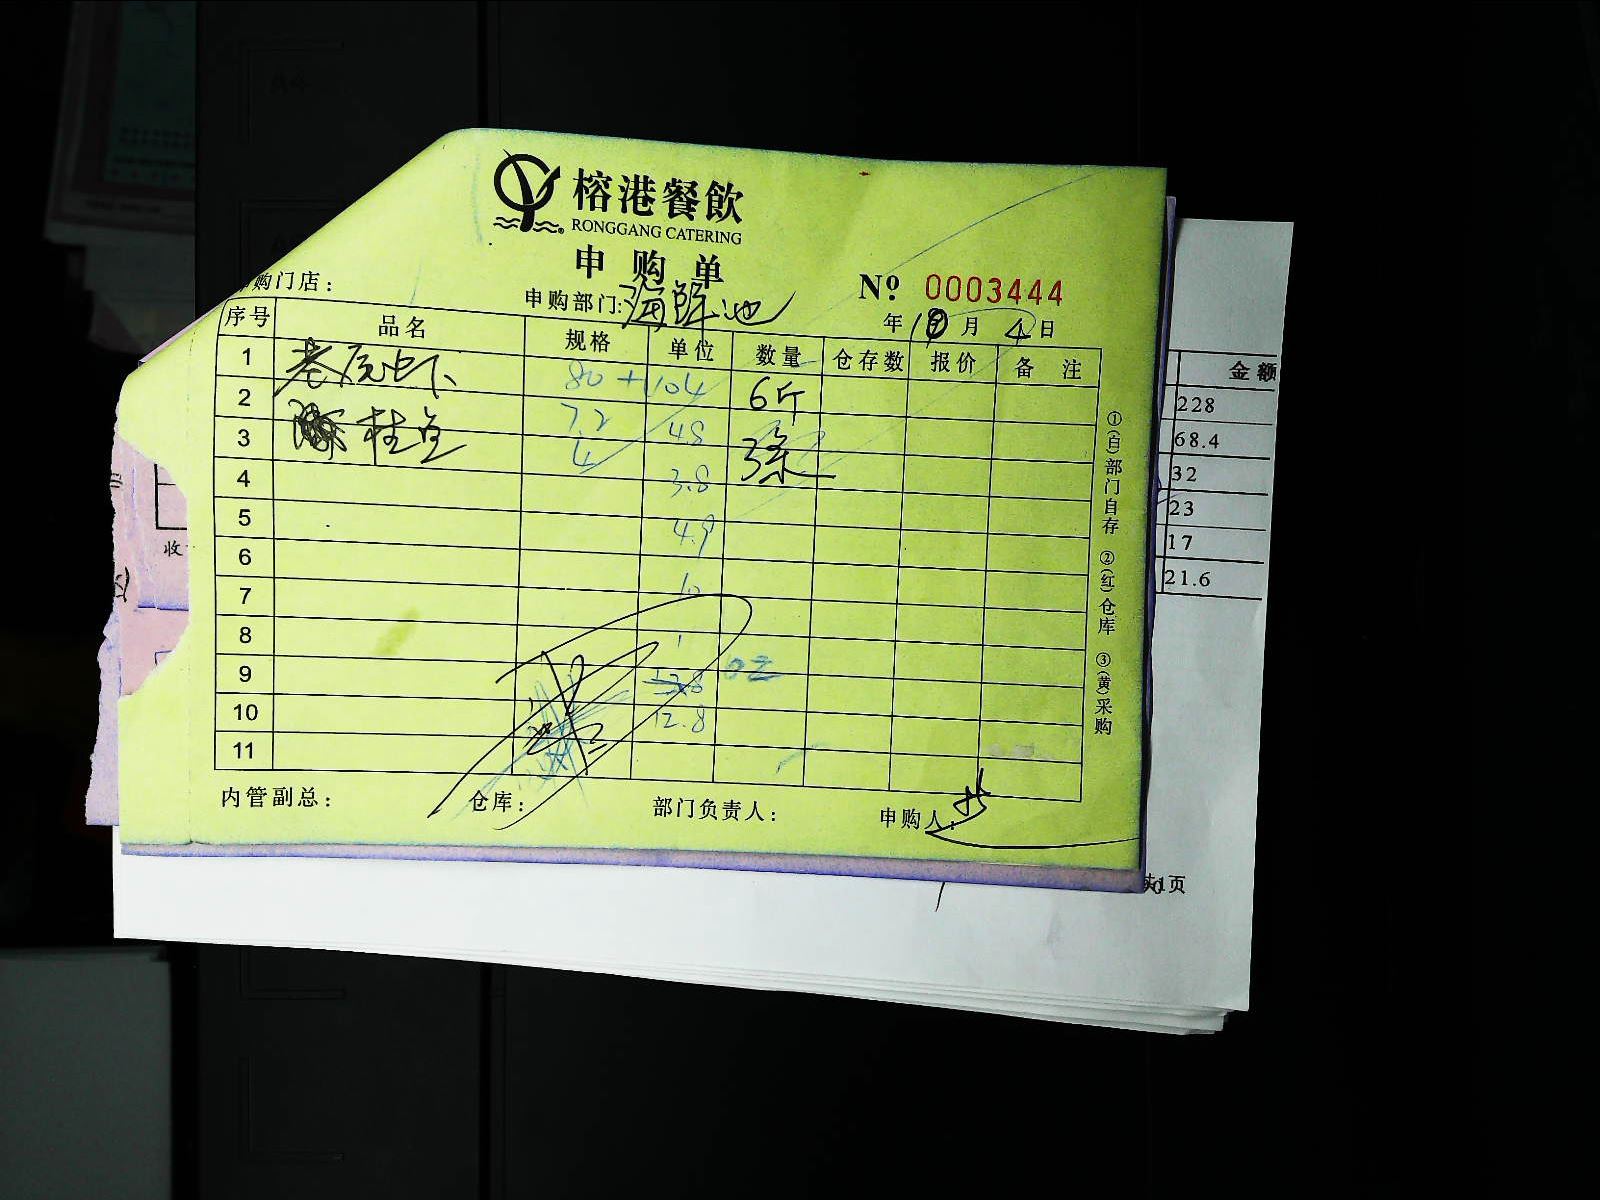 榕港餐飲
RONGGANG CATERING
申购单
购门店：
申购部门：海鲜池
No 0003444
年 10 月 4 日
序号 品名 规格 单位 数量 仓存数 报价 备注
1 老虎虾 80 + 104 6斤
2 7.2 48
3 桂鱼 4 3条
4 3.8
5 4.9
6
7
8 1
9
10 12.8
11
内管副总： 仓库： 部门负责人： 申购人：
①(白)部门自存 ②(红)仓库 ③(黄)采购
金额
228
68.4
32
23
17
21.6
收
1页